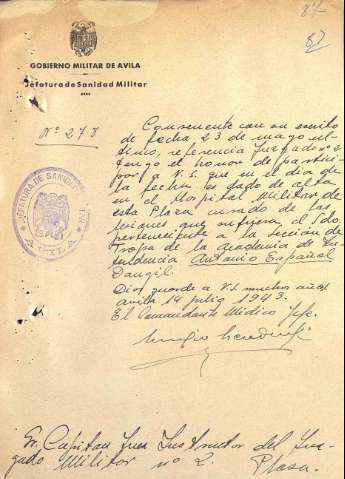 87
GOBIERNO MILITAR DE AVILA
Jefatura de Sanidad Militar
Nº 278
Consecuente con su escrito
de fecha 23 de mayo ul-
timo, referencia Juzgado nº 2
tengo el honor de partici-
par a V.S. que en el dia de
la fecha es dado de alta
en el Hospital Militar de
esta Plaza curado de las
lesiones que sufriera, el Sdo.
perteneciente a la sección de
Tropa de la academia de In-
tendencia Antonio Español
Daugil.
Dios guarde a V.S. muchos años
avila 14 julio 1943.
El Comandante Médico Jefe.
JEFATURA DE SANIDAD
AVILA
Sr. Capitan Juez Instructor del Juz-
gado Militar nº 2. Plaza.